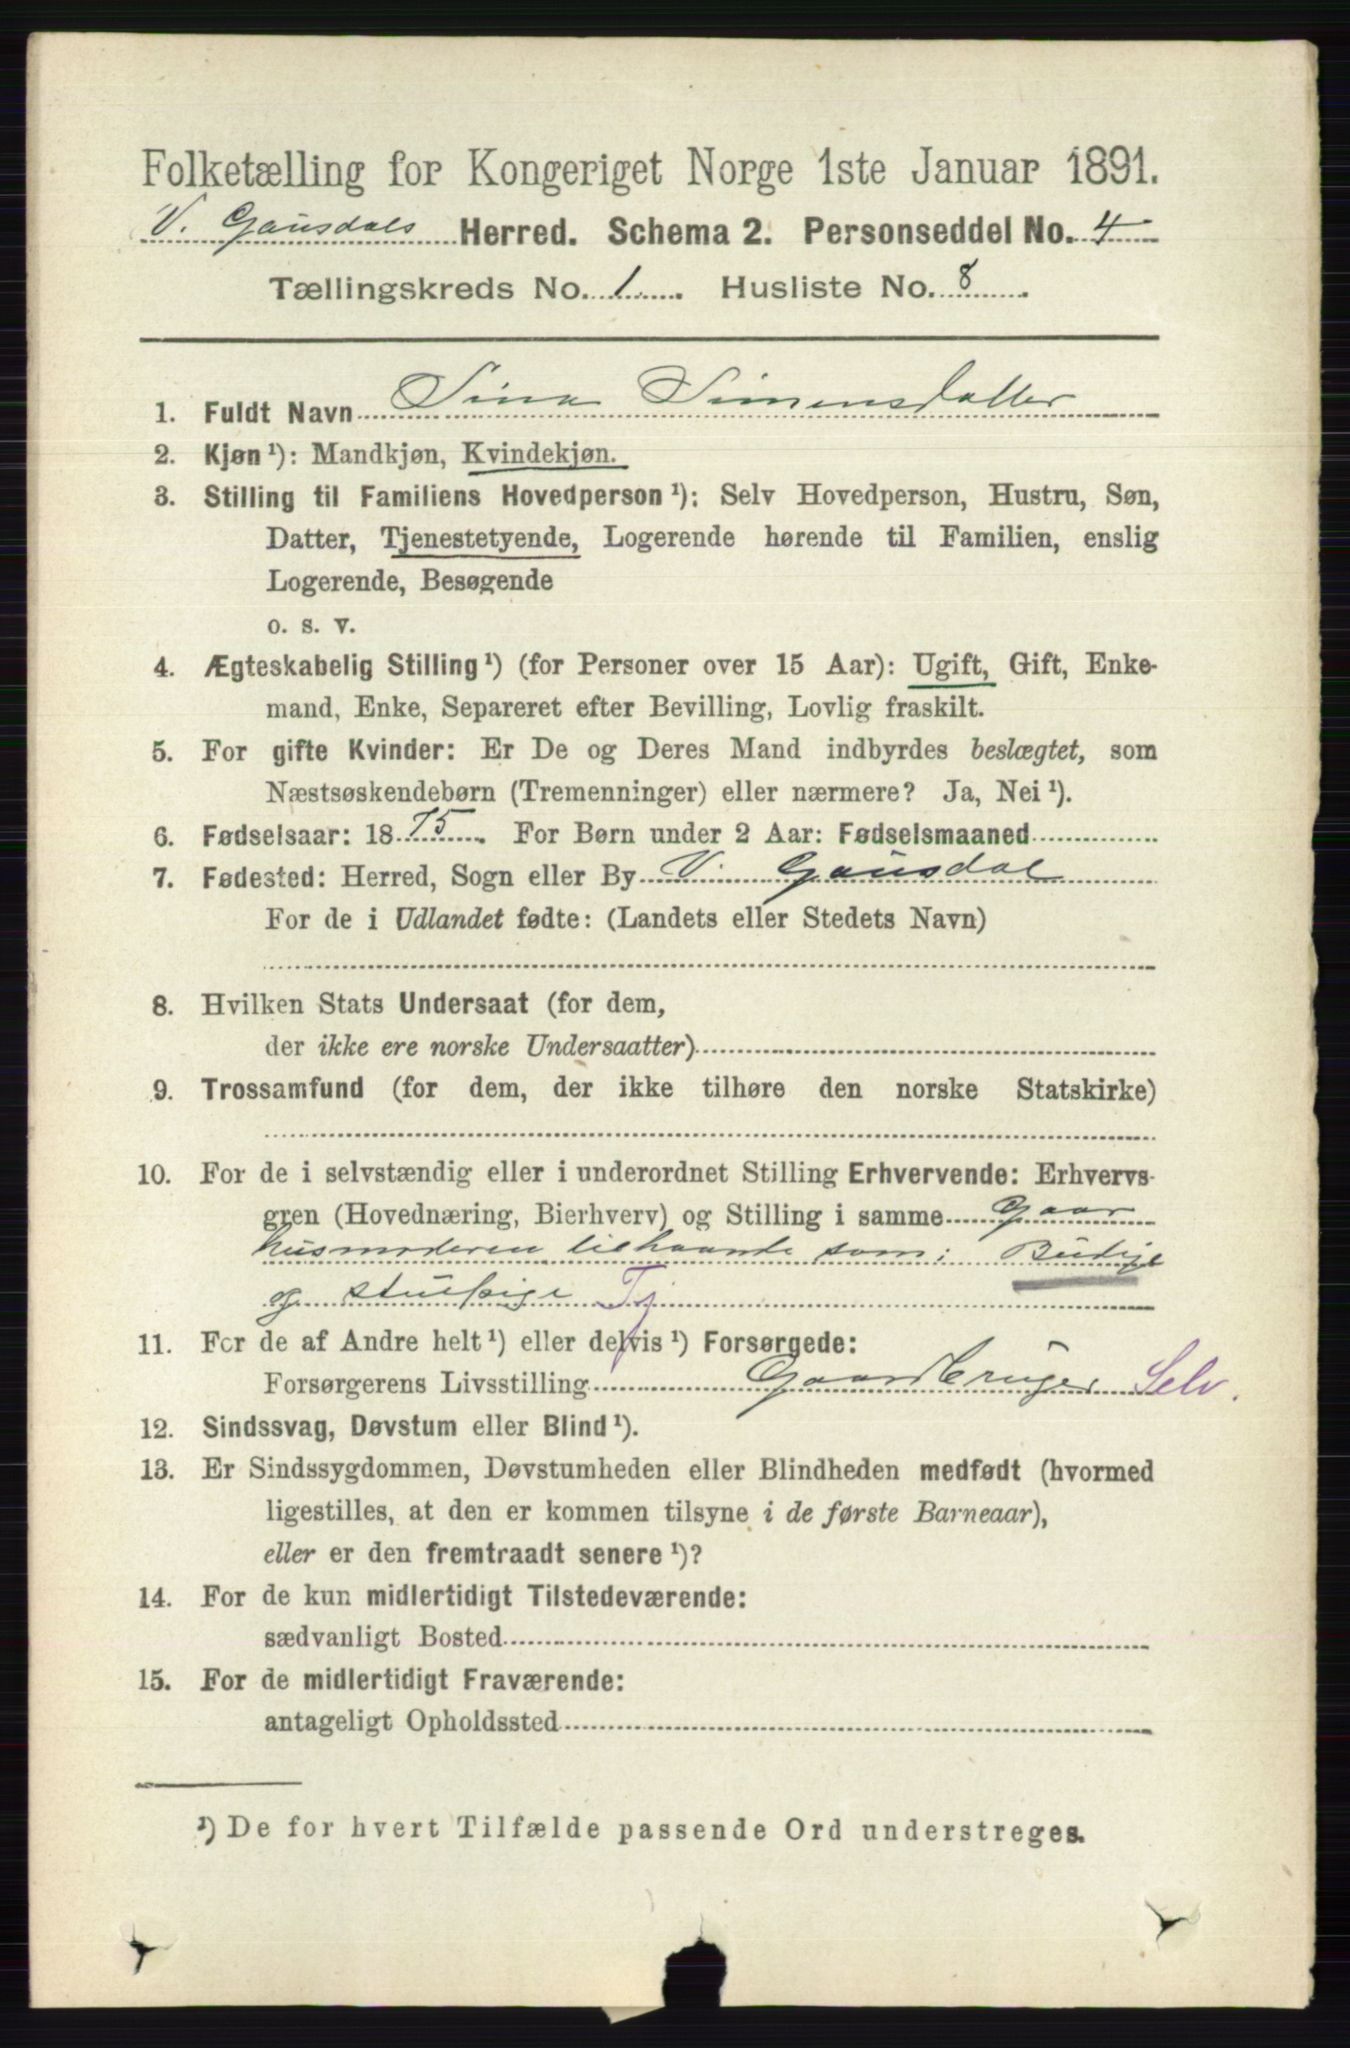 Folketælling for Kongeriget Norge 1ste Januar 1891.
V. Gausdals Herred. Schema 2. Personseddel No. 4
Tællingskreds No. 1. Husliste No. 8.
1. Fuldt Navn Sina Simensdatter
2. Kjøn ¹): Mandkjøn, Kvindekjøn.
3. Stilling til Familiens Hovedperson ¹): Selv Hovedperson, Hustru, Søn,
Datter, Tjenestetyende, Logerende hørende til Familien, enslig
Logerende, Besøgende
o. s. v.
4. Ægteskabelig Stilling ¹) (for Personer over 15 Aar): Ugift, Gift, Enke-
mand, Enke, Separeret efter Bevilling, Lovlig fraskilt.
5. For gifte Kvinder: Er De og Deres Mand indbyrdes beslægtet, som
Næstsøskendebørn (Tremenninger) eller nærmere? Ja, Nei ¹).
6. Fødselsaar: 1875. For Børn under 2 Aar: Fødselsmaaned
7. Fødested: Herred, Sogn eller By V. Gausdal
For de i Udlandet fødte: (Landets eller Stedets Navn)
8. Hvilken Stats Undersaat (for dem,
der ikke ere norske Undersaatter)
9. Trossamfund (for dem, der ikke tilhøre den norske Statskirke)
10. For de i selvstændig eller i underordnet Stilling Erhvervende: Erhvervs-
gren (Hovednæring, Bierhverv) og Stilling i samme Gaar
husmoderen tilhaande som: Budeje
og stuepige Tj
11. For de af Andre helt ¹) eller delvis ¹) Forsørgede:
Forsørgerens Livsstilling Gaardbruger Selv.
12. Sindssvag, Døvstum eller Blind ¹).
13. Er Sindssygdommen, Døvstumheden eller Blindheden medfødt (hvormed
ligestilles, at den er kommen tilsyne i de første Barneaar),
eller er den fremtraadt senere ¹)?
14. For de kun midlertidigt Tilstedeværende:
sædvanligt Bosted
15. For de midlertidigt Fraværende:
antageligt Opholdssted
¹) De for hvert Tilfælde passende Ord understreges.